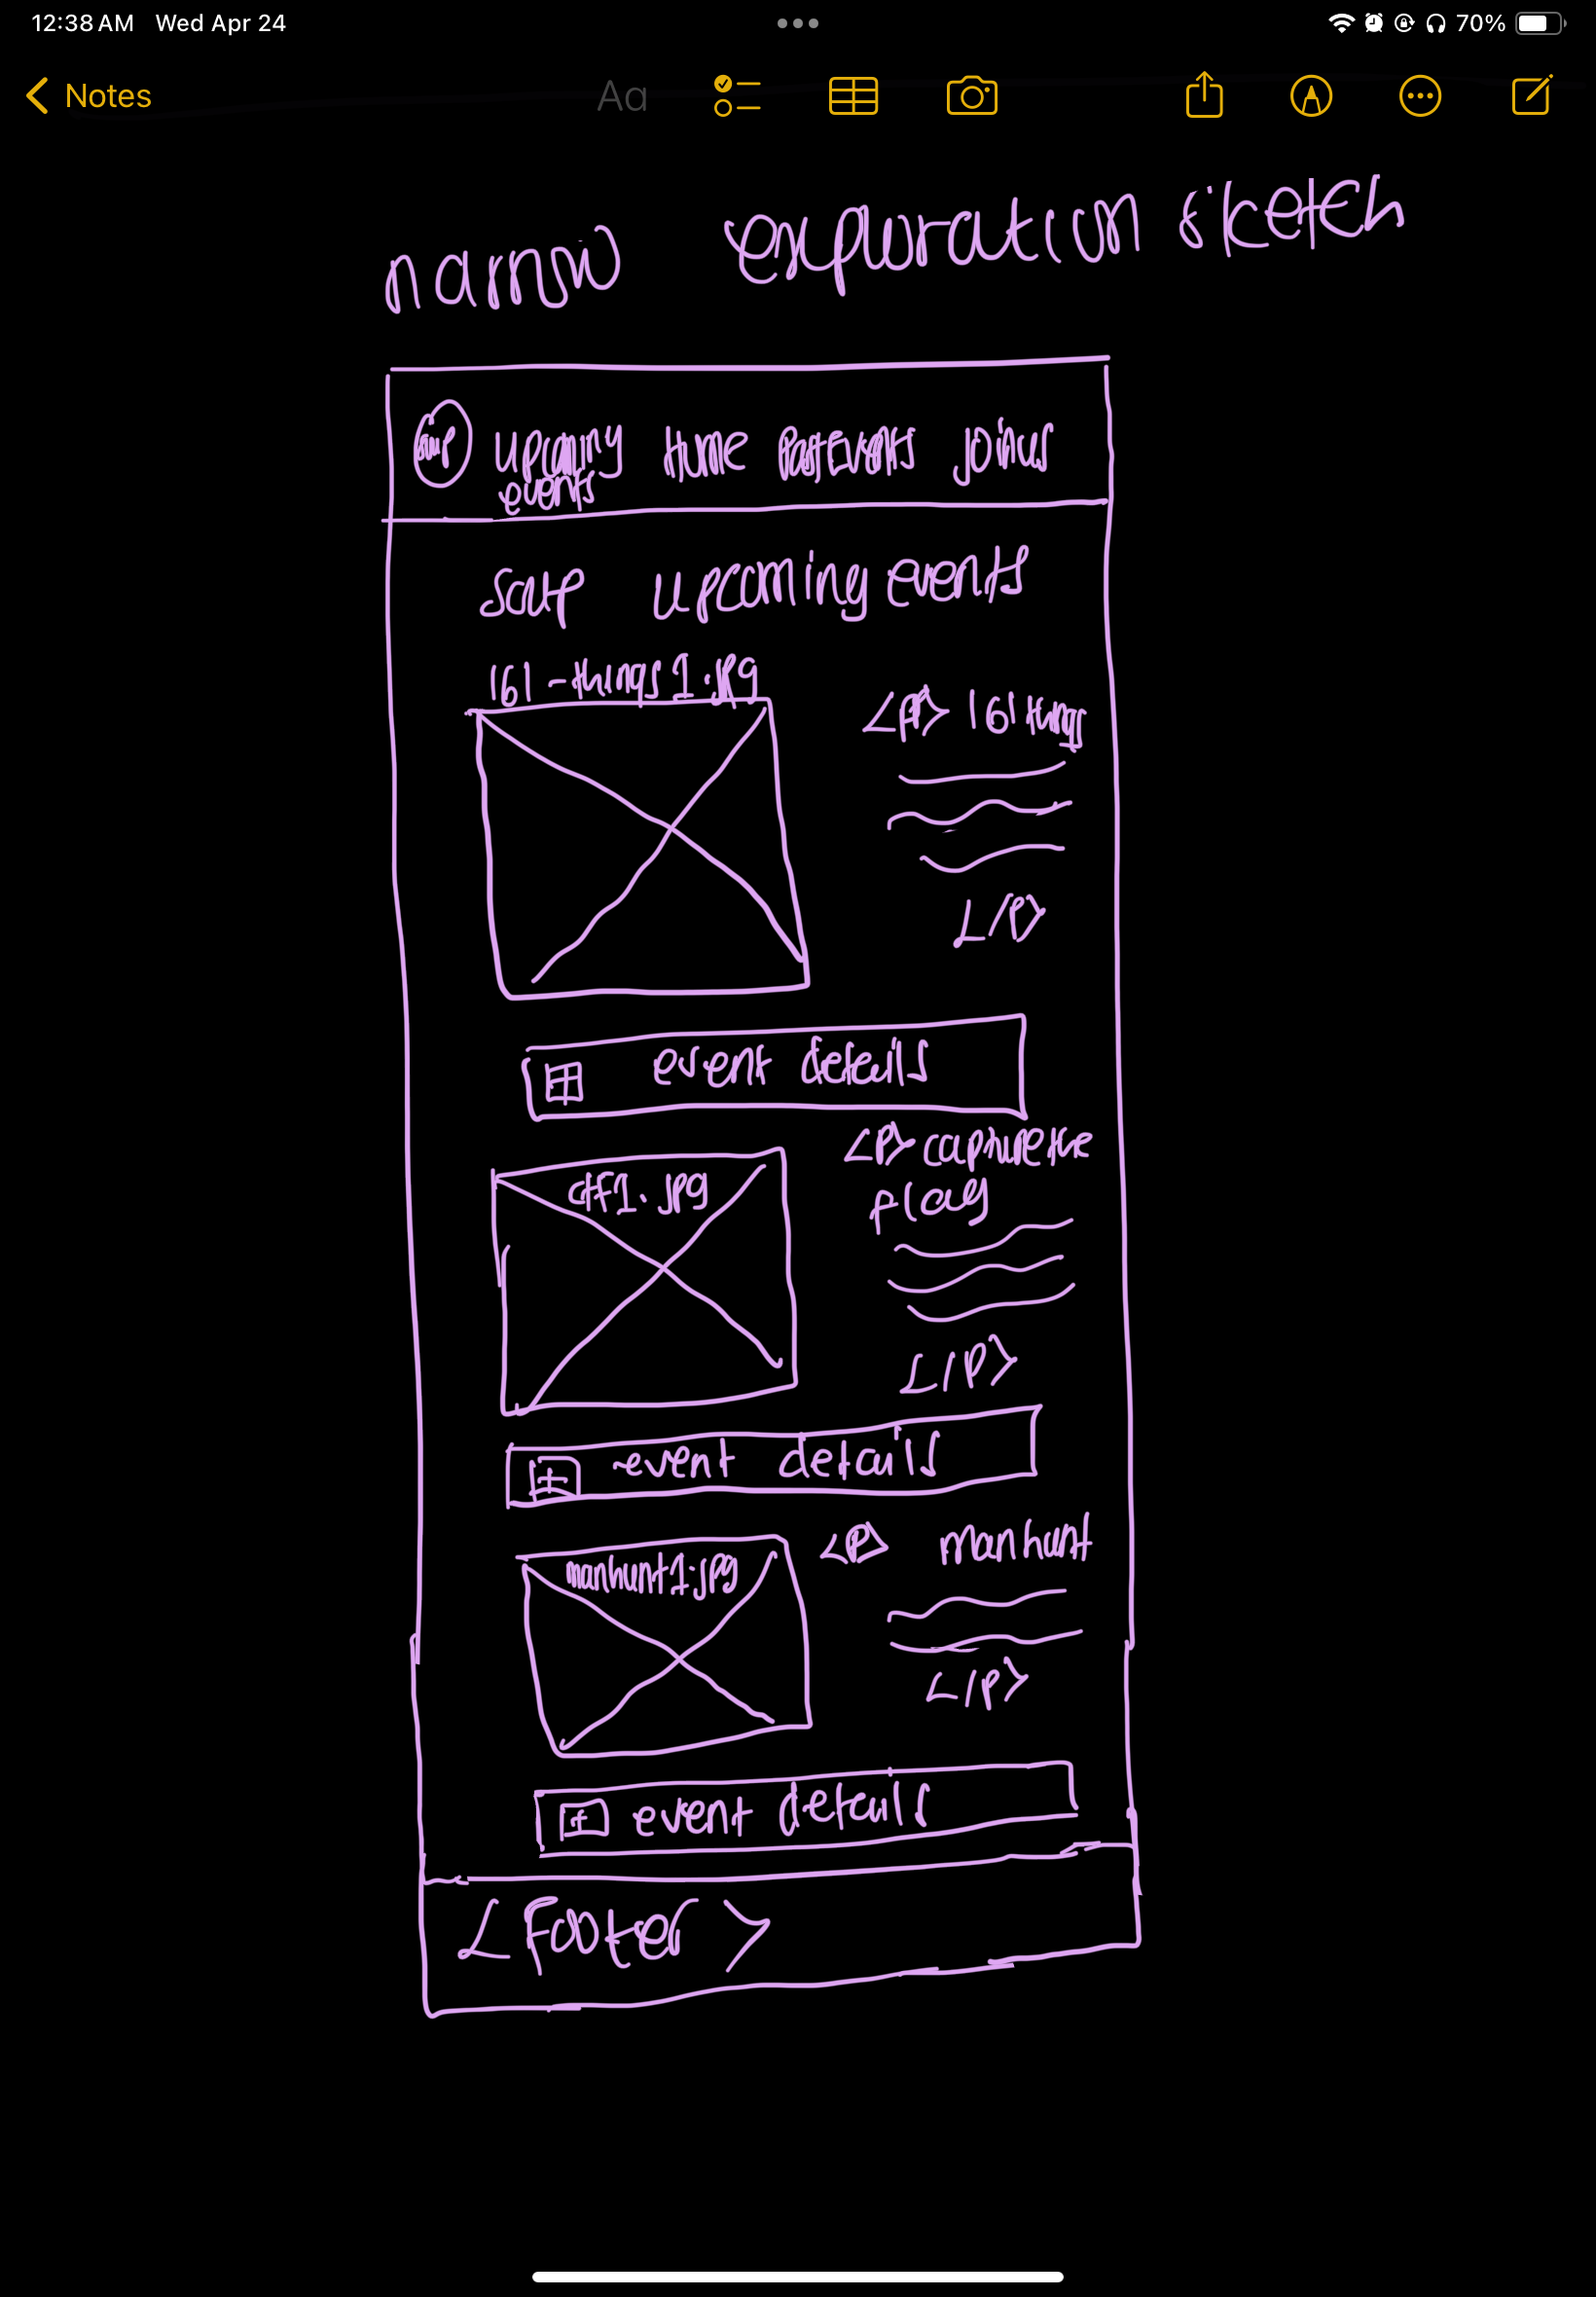 12:38 AM Wed Apr 24
70%
Notes
Aa
narrow exploration sketch
upcoming Home Past Events join us
events
scup upcoming events
161-things1.jpg
<P> 161 things
</P>
event details
<P> capture the
flag
ctf1.jpg
</P>
event details
<P> manhunt
manhunt1.jpg
</P>
event details
<Footer>